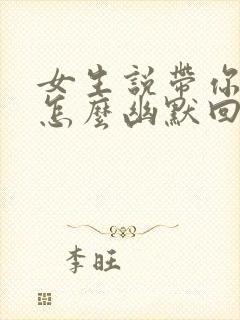 女生說帶你
怎麼幽默回
李旺